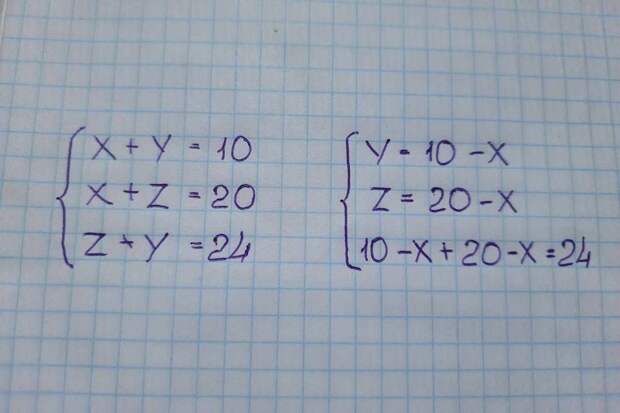 X + Y = 10
X + Z = 20
Z + Y = 24
Y = 10 - X
Z = 20 - X
10 - X + 20 - X = 24